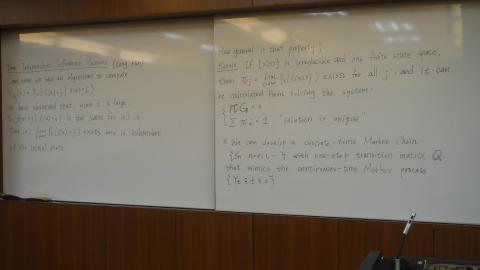 Time Independent Inference Horizons (Long Run)
Last time we saw an algorithm to compute
We have observed that, when t is large,
is the same for all i.
That is, lim Pr{X(t)=j} exists and is independent
of the initial state.
How general is that property?
Result: If {X(t)} is irreducible and has finite state space,
then πj = lim Pr{X(t)=j} exists for all j, and it can
be calculated from solving the system:
πG = 0
Σ πi = 1 "solution is unique"
* We can develop a discrete-time Markov Chain
with one-step transition matrix Q
that mimics the continuous-time Markov process
{Yt ; t ≥ 0}